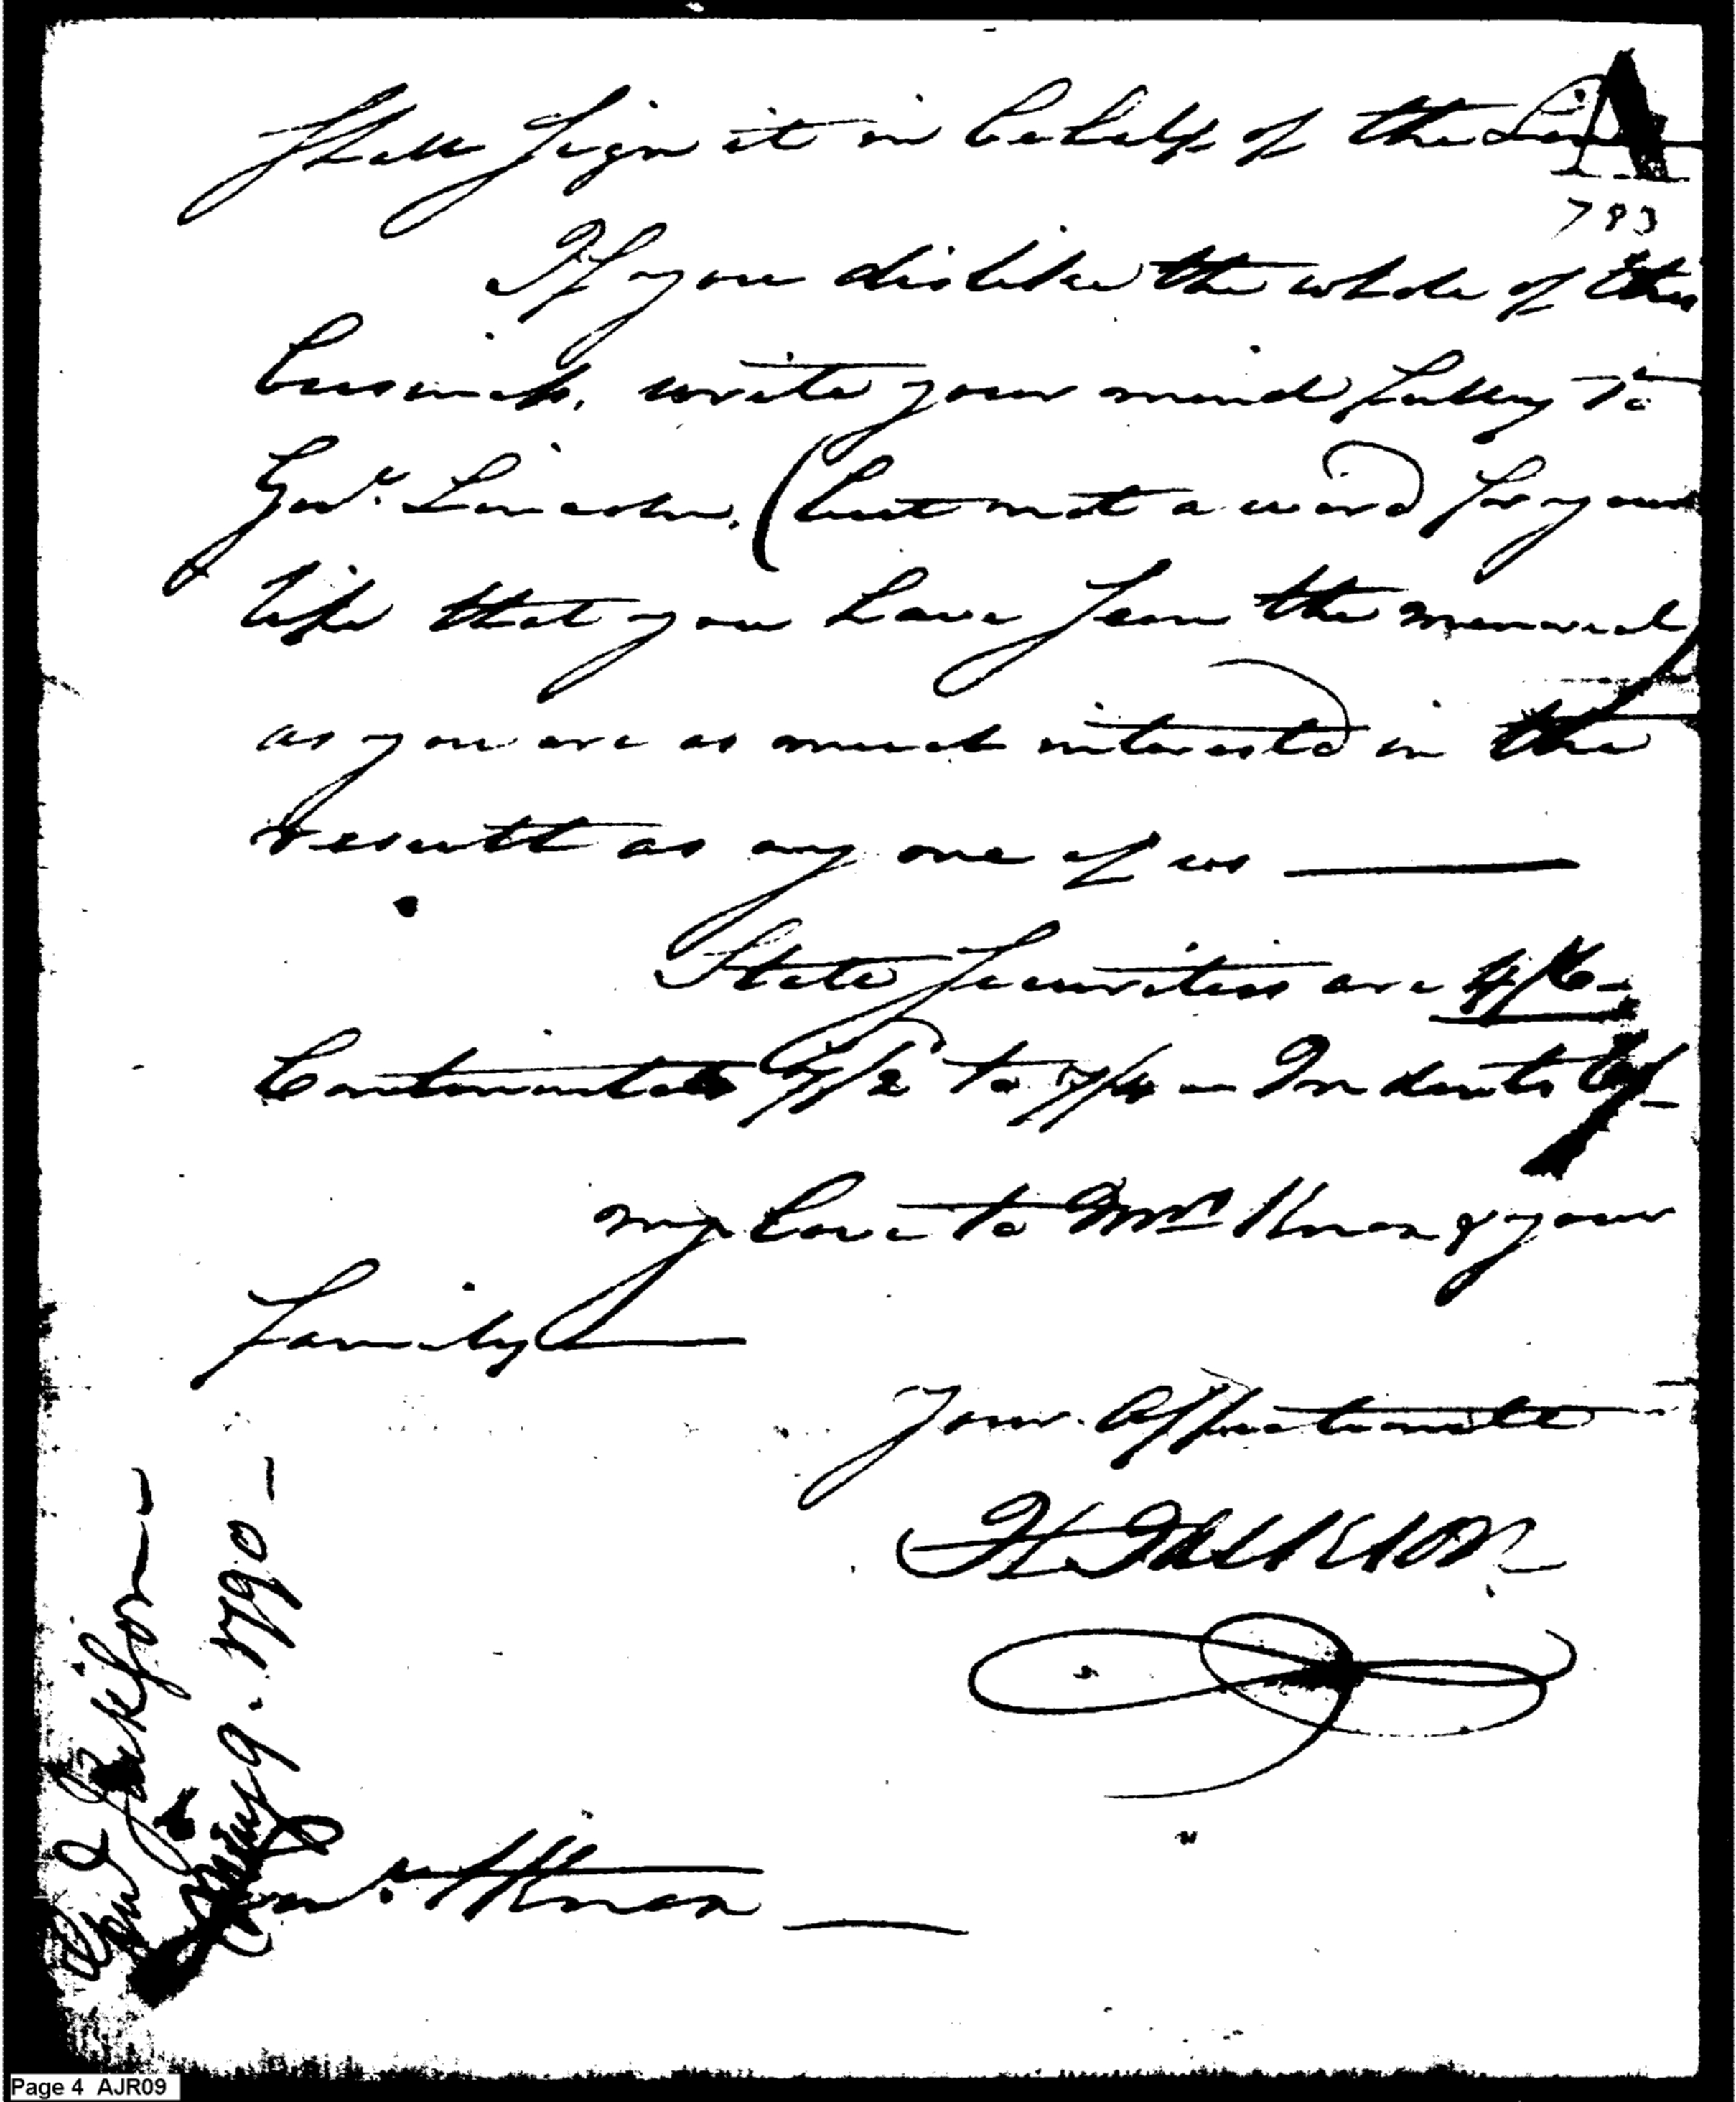 shall sign it in behalf of the Line
A
783
If you dislike the whole of this
business, write your mind fully to
Genl. Lincoln, (but not a word for your
life that you have seen the memorial
as you are as much interested in the
result as any one of us
State Securities are
Continental to Indents
my love to Mrs Knox & your
family
Your Affectionate
H Jackson
Genl. Knox
Genl Jackson
1790
Page 4 AJR09